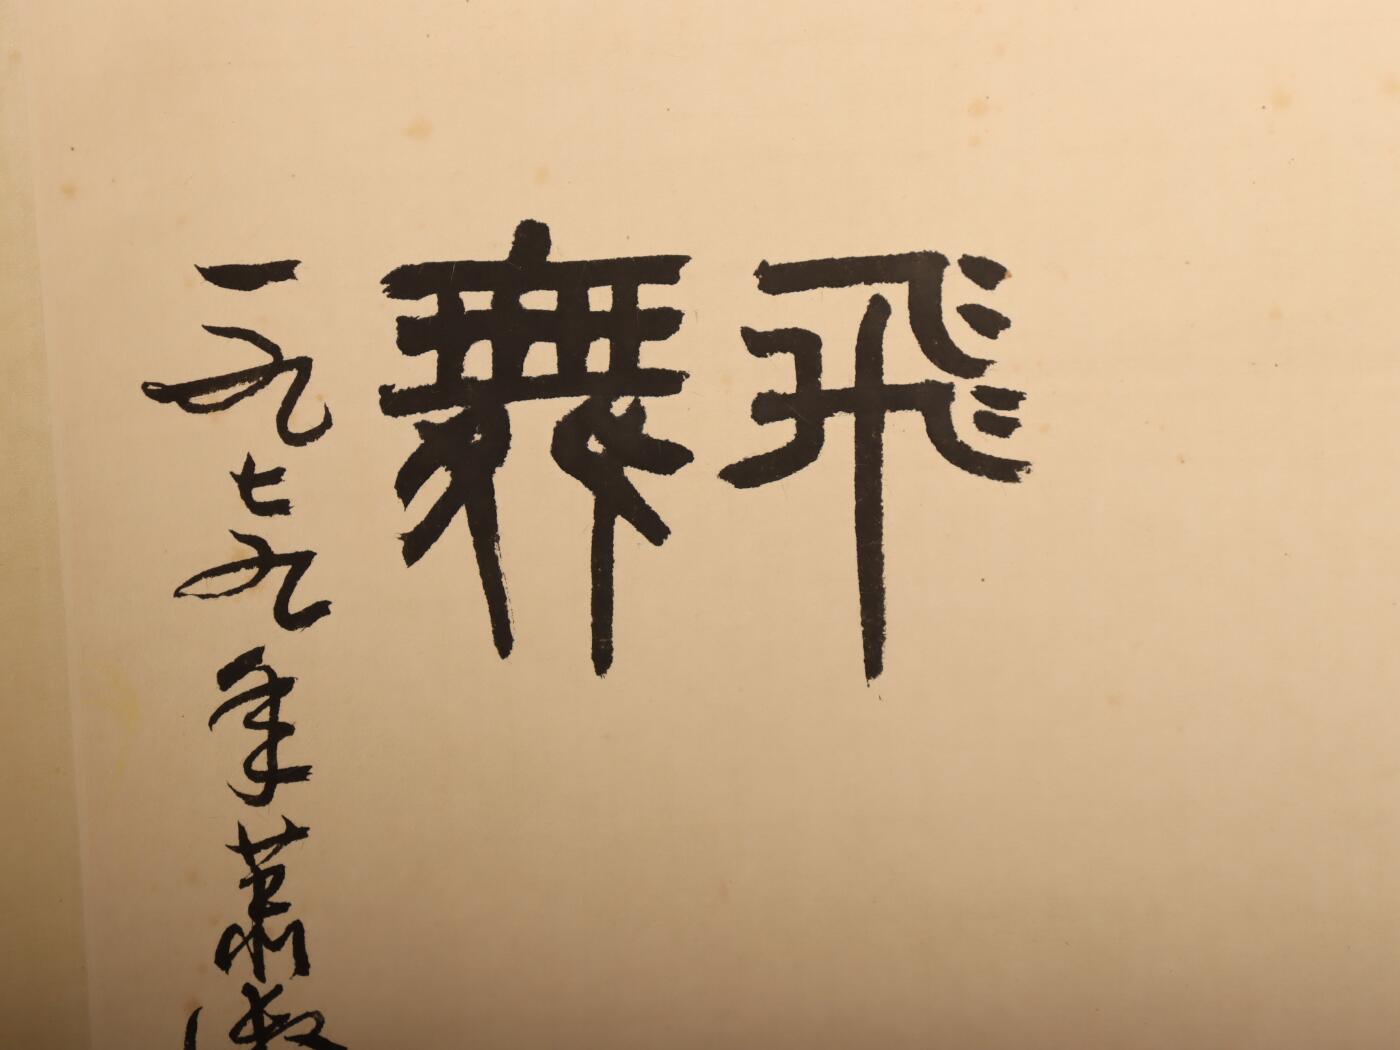 飛舞
一九七九年蕭淑